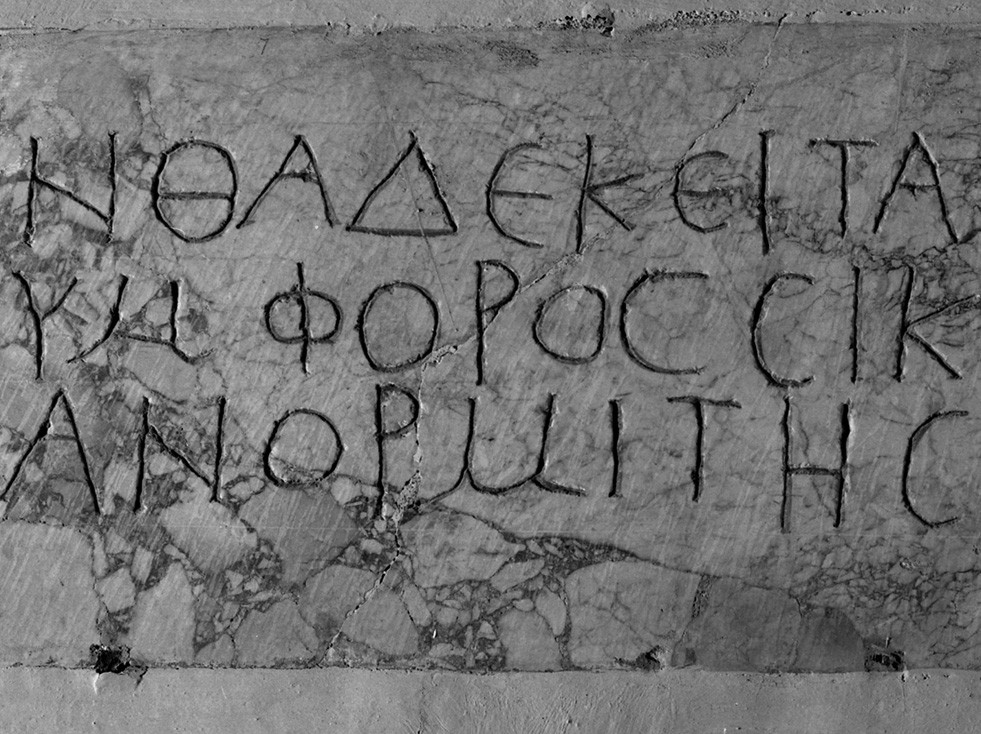 ΝΘΑΔΕΚΕΙΤΑ
ΥΜΦΟΡΟϹ ϹΙΚ
ΑΝΟΡΩΙΤΗϹ